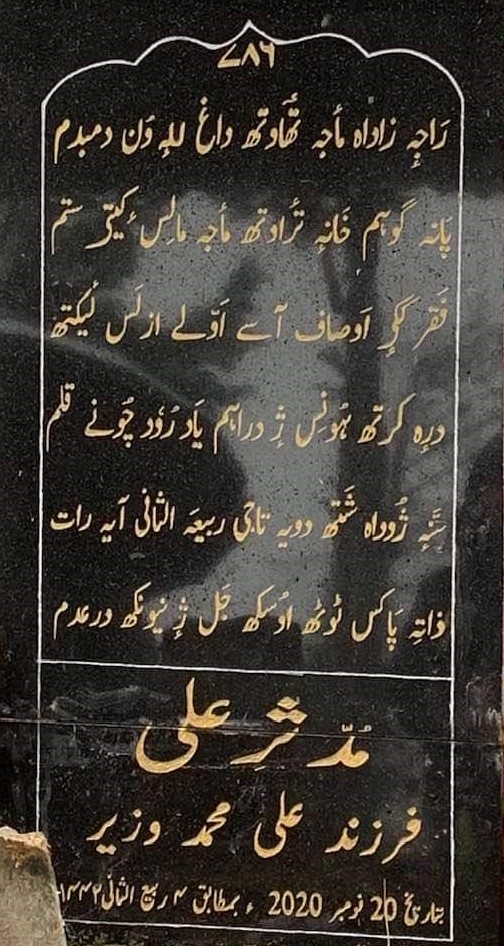 ۷۸۶
رَاجہِ زاداہ مأجہ تھَاوتھ داغ للہِ وَن دمبدم
پَانہ گوہم خَانہِ ترَاوتھ مأجہ مالِس ءکیتی ستم
فَقر کٕی اوصاف آسے اَوّلے ازلَس لیٚکتھ
درہِ کرتھ ہوٚنِس ژِ دراہم یَاد رُوٗد چُونے قلم
سَنہِ ژُوداہ شَتھ دویہ تاجی ربیعہ الثانی آیہ رات
ذاتہِ پَاکس ٹوٹھ اوٗسکھ جَل ژٕ نیونکھ درعدم
مُدّثرِ علی
فرزند علی محمد وزیر
بتاریخ 20 نومبر 2020 ء بمطابق ۴ ربیع الثانی ۱۴۴۲